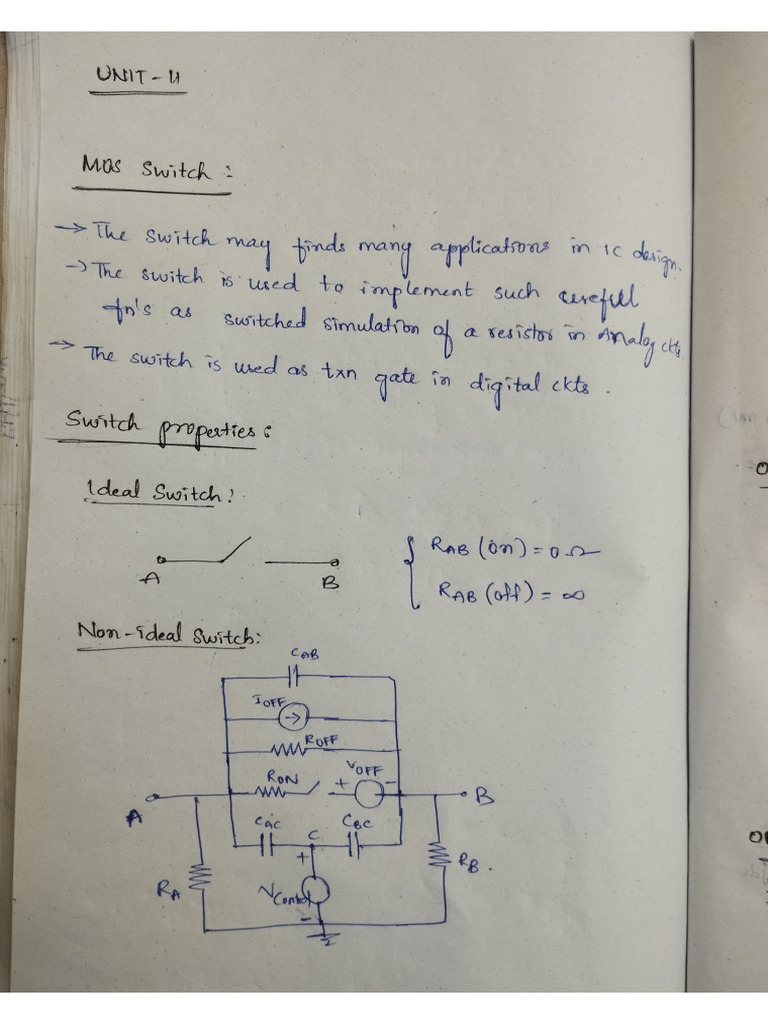 UNIT - II
MOS Switch :
→ The switch may finds many applications in IC design.
→ The switch is used to implement such useful
fn's as switched simulation of a resistor in Analog ckts
→ The switch is used as txn gate in digital ckts .
Switch properties :
Ideal Switch :
A B
{ R_AB (on) = 0 Ω
R_AB (off) = ∞
Non-ideal Switch :
C_AB
I_OFF
R_OFF
R_ON + V_OFF -
A B
C_AC C C_BC
+
R_A V_Control R_B .
-